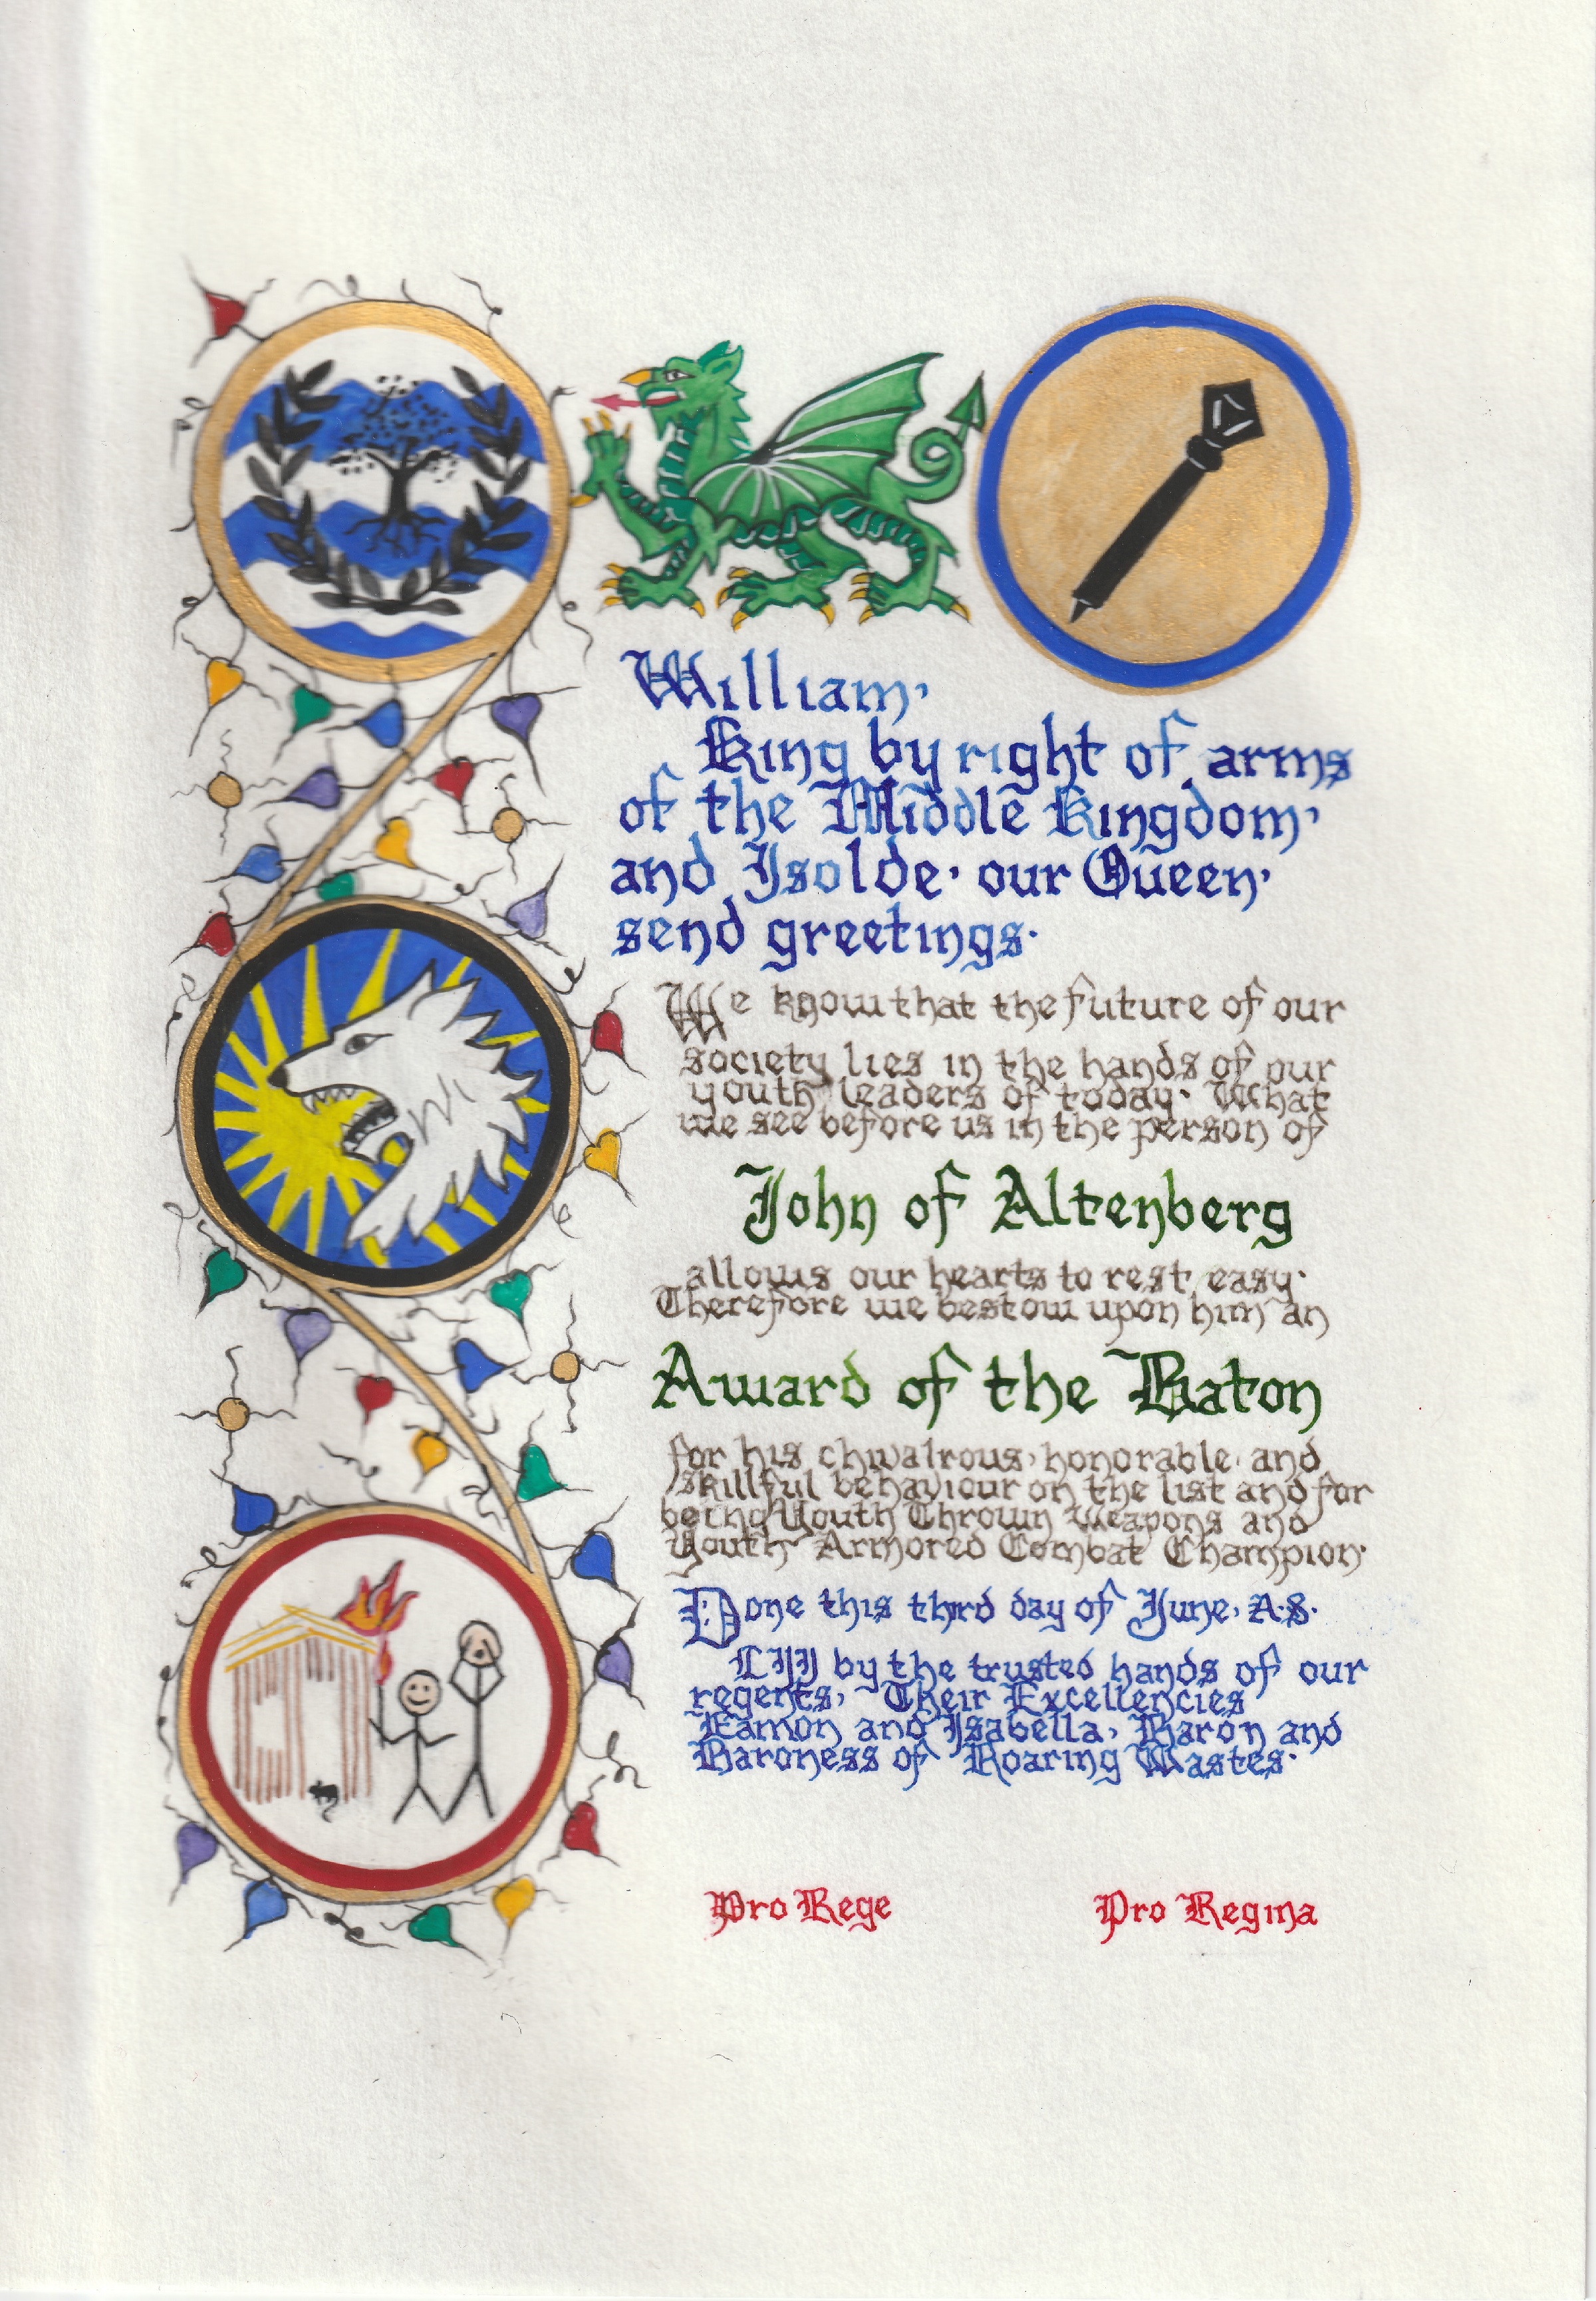 William,
King by right of arms
of the Middle Kingdom,
and Isolde, our Queen,
send greetings.
We know that the future of our
society lies in the hands of our
youth leaders of today. What
we see before us in the person of
John of Altenberg
allows our hearts to rest easy.
Therefore we bestow upon him an
Award of the Baton
for his chivalrous, honorable, and
skillful behaviour on the list and for
being Youth Thrown Weapons and
Youth Armored Combat Champion.
Done this third day of June, A.S.
LIII by the trusted hands of our
regents, Their Excellencies
Eamon and Isabella, Baron and
Baroness of Roaring Wastes.
Pro Rege Pro Regina